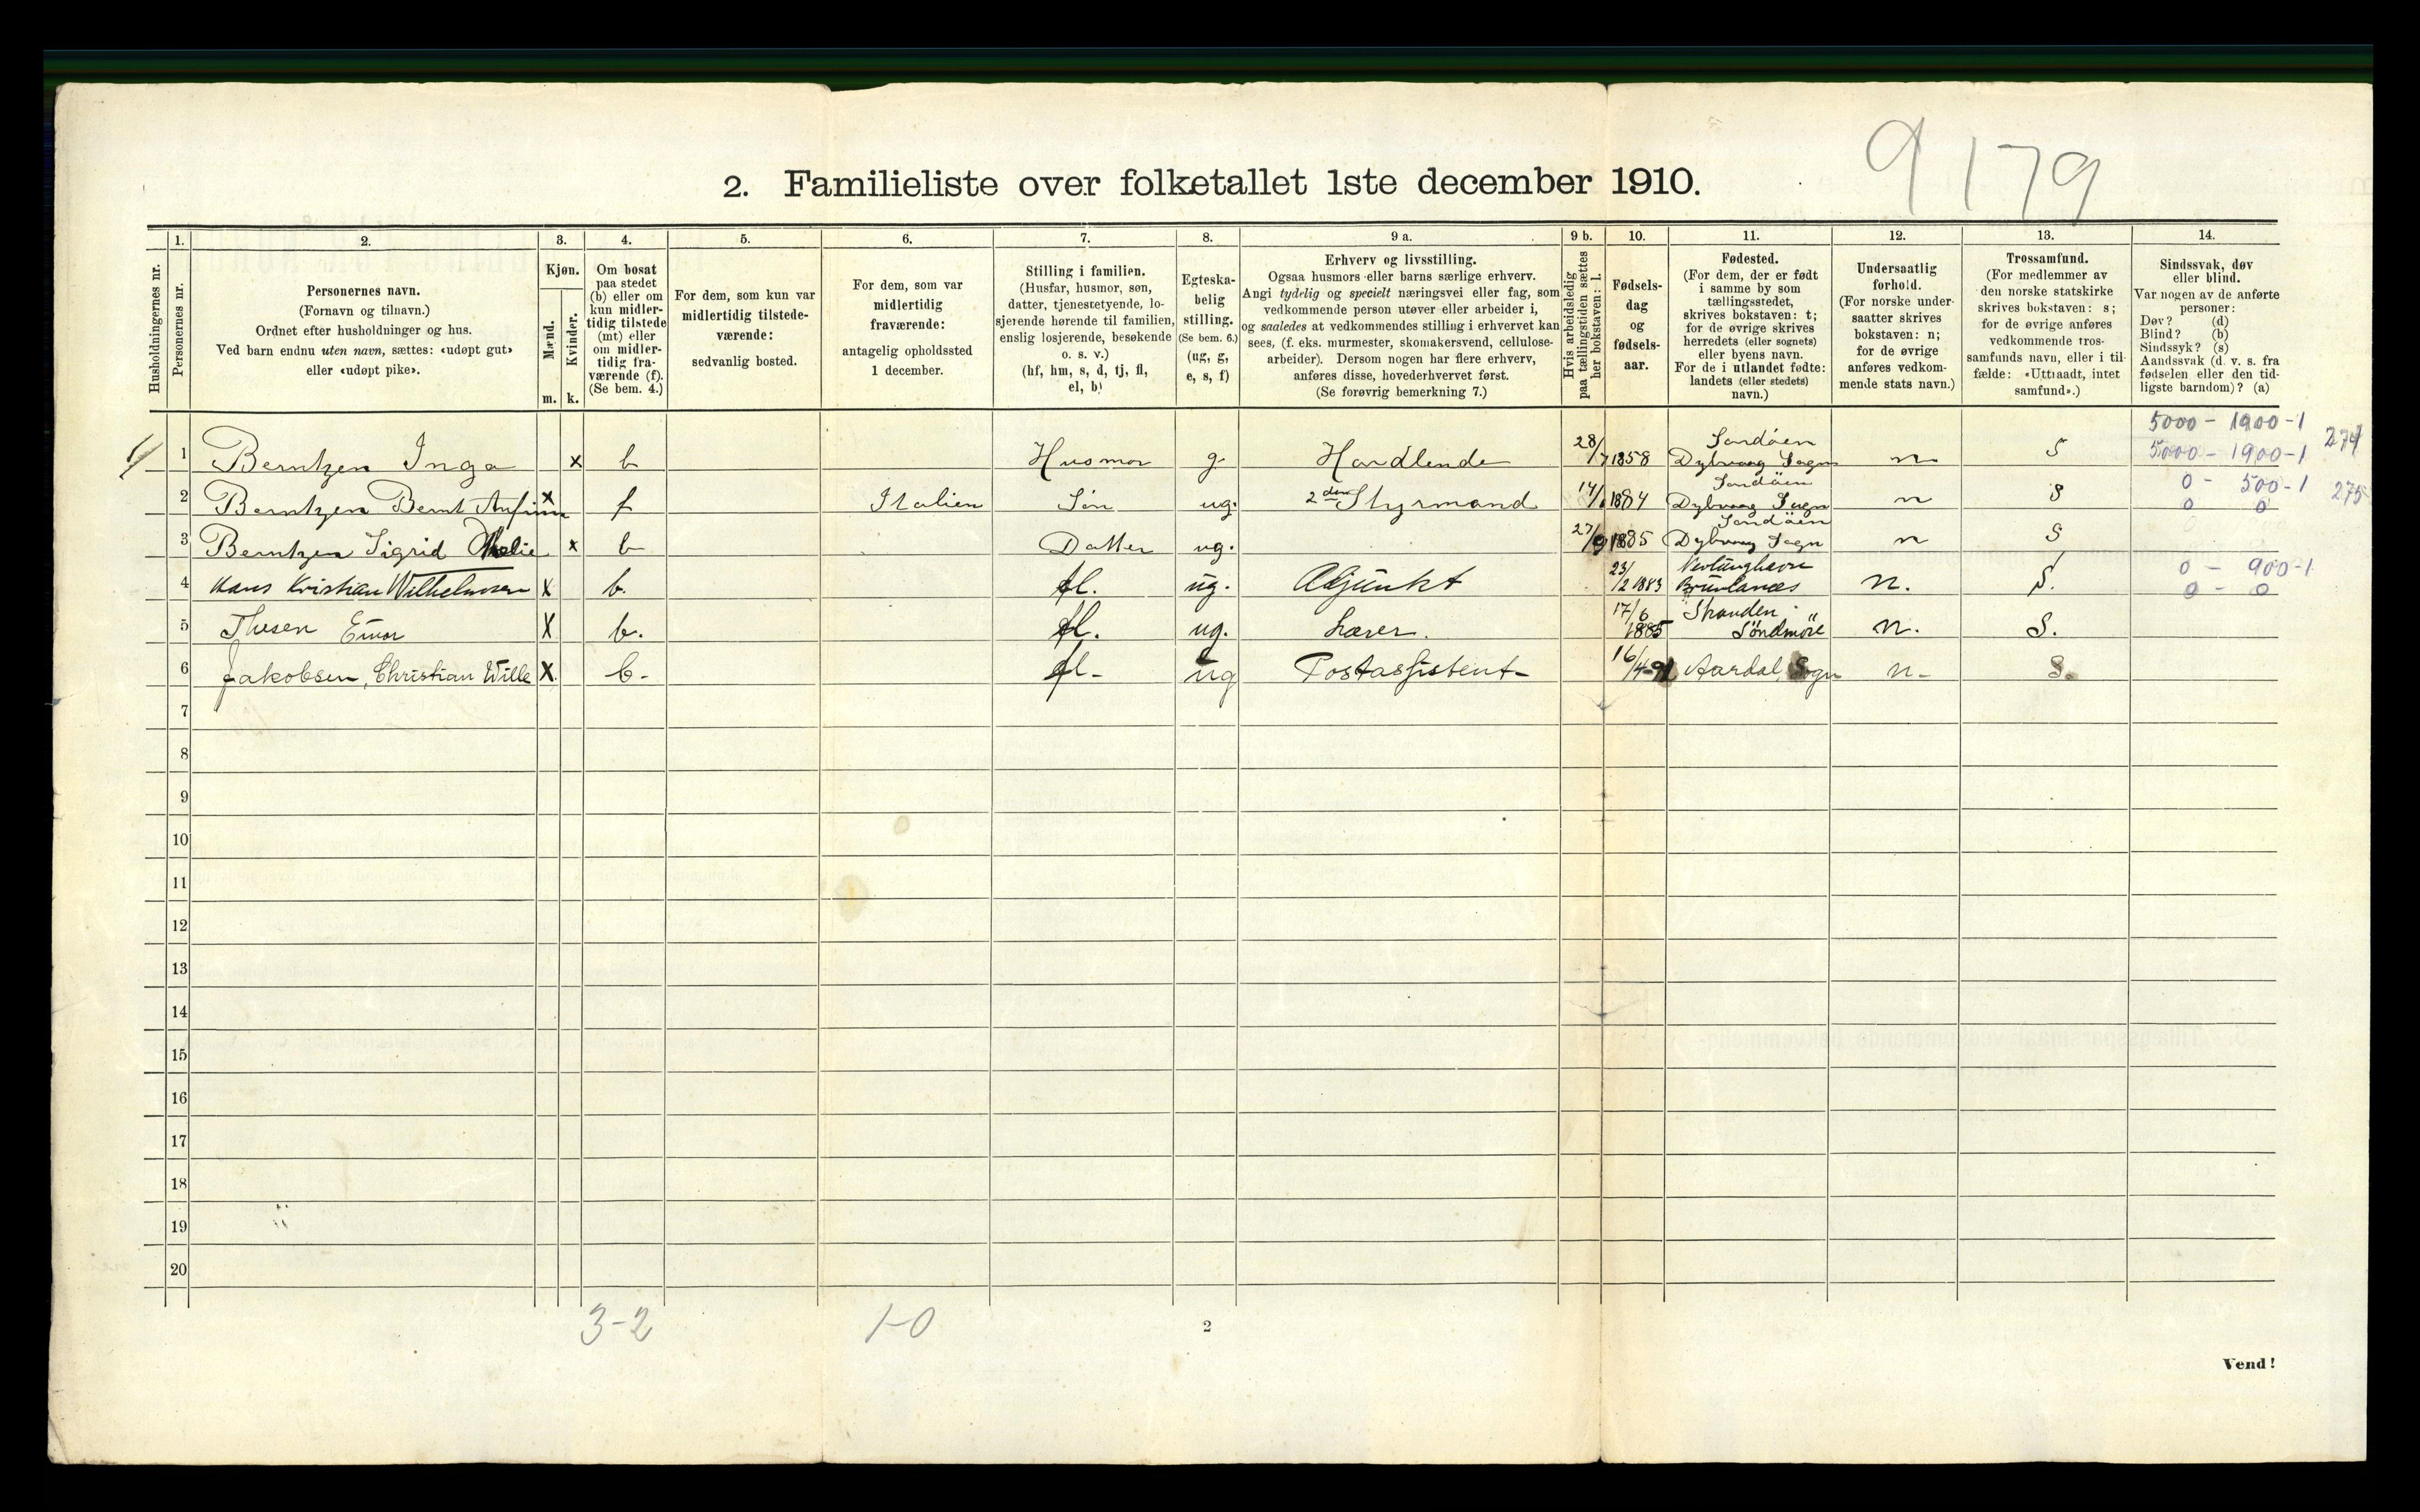 9 179
2. Familieliste over folketallet 1ste december 1910.
Husholdningernes nr.
1. Personernes nr.
2. Personernes navn.
(Fornavn og tilnavn.)
Ordnet efter husholdninger og hus.
Ved barn endnu uten navn, sættes: «udøpt gut»
eller «udøpt pike».
3. Kjøn.
Mænd. m.
Kvinder. k.
4. Om bosat
paa stedet
(b) eller om
kun midler-
tidig tilstede
(mt) eller
om midler-
tidig fra-
værende (f).
(Se bem. 4.)
5. For dem, som kun var
midlertidig tilstede-
værende:
sedvanlig bosted.
6. For dem, som var
midlertidig
fraværende:
antagelig opholdssted
1 december.
7. Stilling i familien.
(Husfar, husmor, søn,
datter, tjenestetyende, lo-
sjerende hørende til familien,
enslig losjerende, besøkende
o. s. v.)
(hf, hm, s, d, tj, fl,
el, b)
8. Egteska-
belig
stilling.
(Se bem. 6.)
(ug, g,
e, s, f)
9 a. Erhverv og livsstilling.
Ogsaa husmors eller barns særlige erhverv.
Angi tydelig og specielt næringsvei eller fag, som
vedkommende person utøver eller arbeider i,
og saaledes at vedkommendes stilling i erhvervet kan
sees, (f. eks. murmester, skomakersvend, cellulose-
arbeider). Dersom nogen har flere erhverv,
anføres disse, hovederhvervet først.
(Se forøvrig bemerkning 7.)
9 b. Hvis arbeidsledig
paa tællingstiden sættes
her bokstaven: l.
10. Fødsels-
dag
og
fødsels-
aar.
11. Fødested.
(For dem, der er født
i samme by som
tællingsstedet,
skrives bokstaven: t;
for de øvrige skrives
herredets (eller sognets)
eller byens navn.
For de i utlandet fødte:
landets (eller stedets)
navn.)
12. Undersaatlig
forhold.
(For norske under-
saatter skrives
bokstaven: n;
for de øvrige
anføres vedkom-
mende stats navn.)
13. Trossamfund.
(For medlemmer av
den norske statskirke
skrives bokstaven: s;
for de øvrige anføres
vedkommende tros-
samfunds navn, eller i til-
fælde: «Uttraadt, intet
samfund».)
14. Sindssvak, døv
eller blind.
Var nogen av de anførte
personer:
Døv? (d)
Blind? (b)
Sindssyk? (s)
Aandssvak (d. v. s. fra
fødselen eller den tid-
ligste barndom)? (a)
5000 - 1900-1
1 Berntzen Inga x b Husmor g. Handlende 28/7 1858 Sandöen Dybvaag Sogn n S 5000 - 1900-1 274
2 Berntzen Bernt Anfinn x f Italien Søn ug. 2den Styrmand 14/ 1884 Sandöen Dybvaag Sogn n S 0 - 500-1 275
0 0
3 Berntzen Sigrid x b Datter ug. 27/9 1885 Sandöen Dybvaag Sogn n S
4 Hans Kristian Wilhelmsen x b. fl. ug. Adjunkt 23/2 1883 Nevlunghavn Brunlanæs n. S. 0 - 900-1
0 - 0
5 Thesen Einar x b. fl. ug. Lærer. 17/6 1885 Stranden Söndmöre n. S.
6 Jakobsen, Christian Wille x. b. fl. ug Postassistent 16/4-91 Aardal, Sogn n. S.
7
8
9
10
11
12
13
14
15
16
17
18
19
20
3-2 1-0
2
Vend!